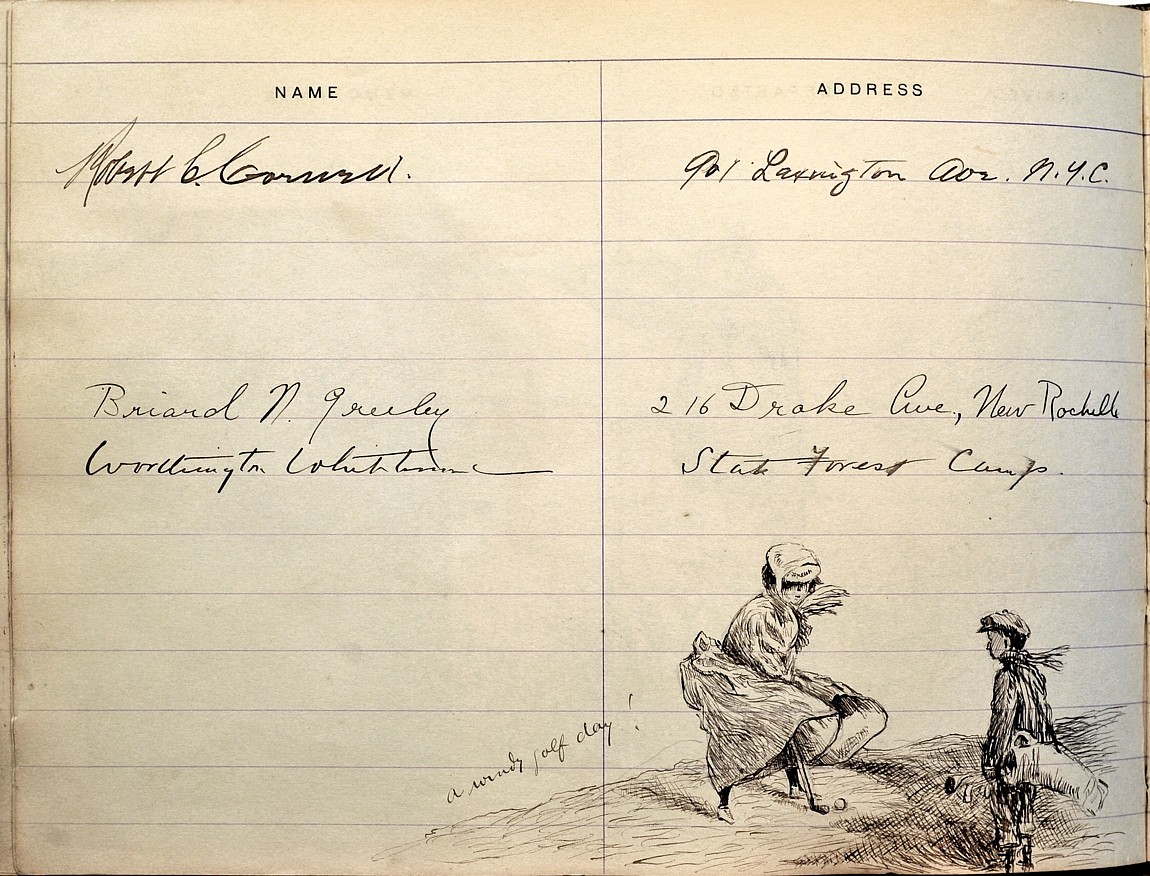 NAME ADDRESS
Robert C. Cornell. 901 Lexington Ave. N.Y.C.
Briard N. Greeley 216 Drake Ave., New Rochelle
Worthington Whittredge State Forest Camp.
a windy golf day!